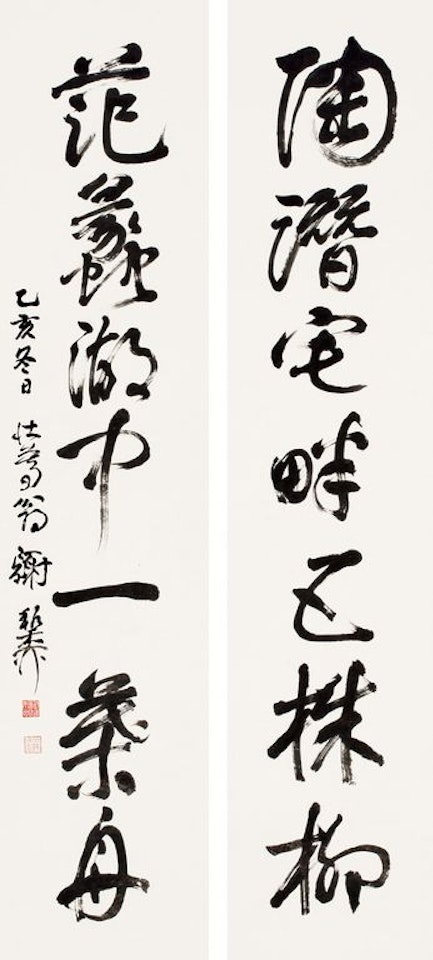 陶潛宅畔五株柳
范蠡湖中一葉舟
乙亥冬日 壯萼翁 謝稚柳